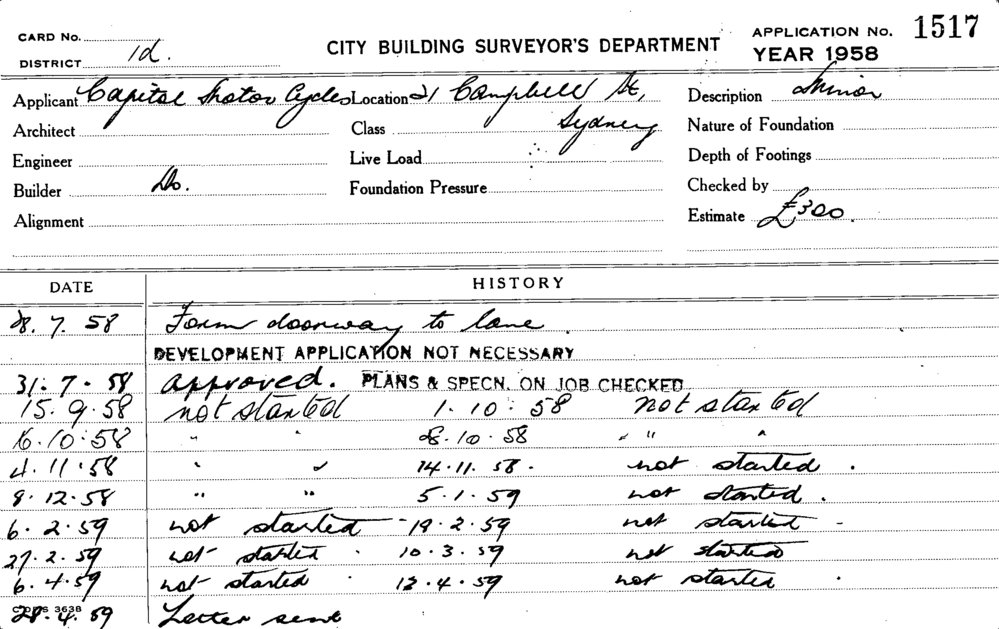 CARD No.
DISTRICT 1d.
CITY BUILDING SURVEYOR'S DEPARTMENT
APPLICATION No. 1517
YEAR 1958
Applicant Capitol Motor Cycles Location 21 Campbell St, Description Minor
Sydney
Architect Class Nature of Foundation
Engineer Live Load Depth of Footings
Builder Do. Foundation Pressure Checked by
Alignment Estimate £300
DATE HISTORY
28. 7. 58 Form doorway to lane
DEVELOPMENT APPLICATION NOT NECESSARY
31. 7. 58 approved. PLANS & SPECN. ON JOB CHECKED
15. 9. 58 not started 1. 10. 58 not started
16. 10. 58 " " 28. 10. 58 " " "
4. 11. 58 " " 14. 11. 58. not started .
9. 12. 58 " " 5. 1. 59 not started .
6. 2. 59 not started - 19. 2. 59 not started -
27. 2. 59 not started . 10. 3. 59 not started
6. 4. 59 not started . 12. 4. 59 not started .
28. 4. 59 Letter sent
3638